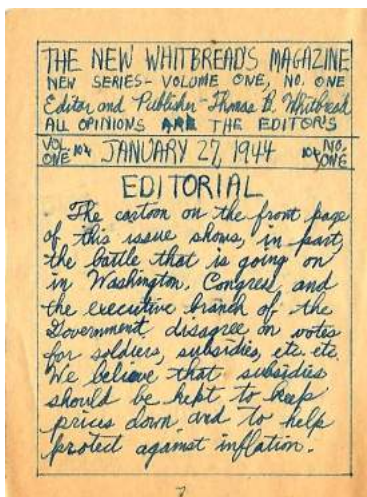 THE NEW WHITBREAD'S MAGAZINE
NEW SERIES - VOLUME ONE, NO. ONE
Editor and Publisher - Thomas B. Whitbread
ALL OPINIONS ARE THE EDITOR'S
VOL. ONE 10¢ JANUARY 27, 1944 10¢ NO. ONE
EDITORIAL
The cartoon on the front page
of this issue shows, in part,
the battle that is going on
in Washington. Congress, and
the executive branch of the
Government disagree on votes
for soldiers, subsidies, etc. etc.
We believe that subsidies
should be kept to keep
prices down and to help
protect against inflation.